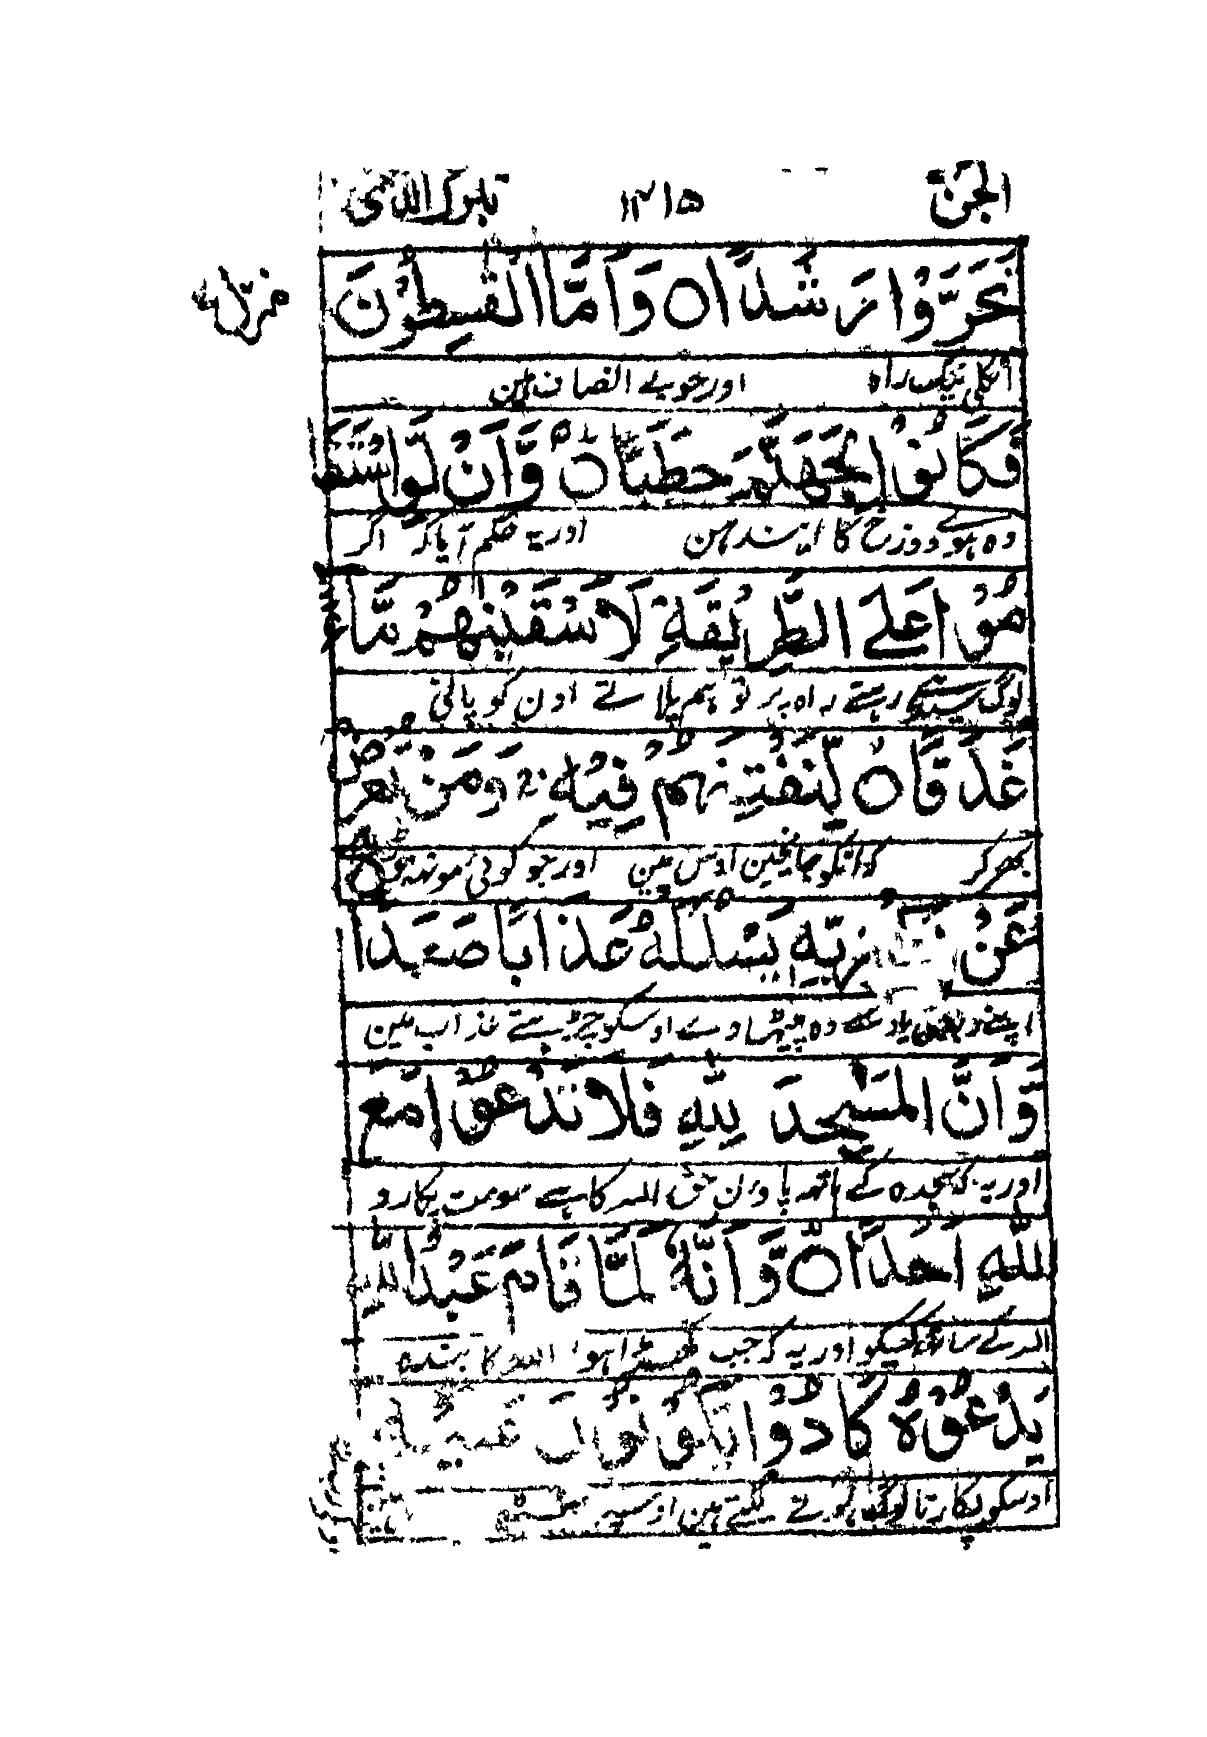 الجن ١٢١٥ تبٰرك الذی
تَحَرَّوْا رَشَدًا ۝ وَاَمَّا الْقٰسِطُوْنَ
منزل
اٹکلی نیک راہ اور جو بے انصاف ہین
فَكَانُوْا لِجَهَنَّمَ حَطَبًا ۝ وَّاَنْ لَّوِ اسْتَقَا
وہ ہوے دوزخ کا ایندہن اور یہ حکم آیا کہ اگر
مُوْا عَلَى الطَّرِيْقَةِ لَاَسْقَيْنٰهُمْ مَّآءً
لوگ سیدھے رہتے راہ پر تو ہم پلاتے اون کو پانی
غَدَقًا ۝ لِّنَفْتِنَهُمْ فِيْهِ ؕ وَمَنْ يُّعْرِضْ
بھر کر کہ اونکو جانچین اوس مین اور جو کوئی مونہہ
عَنْ ذِكْرِ رَبِّهٖ يَسْلُكْهُ عَذَابًا صَعَدًا
اپنے رب کی یاد سے وہ پیٹھاوے اوسکو چڑہتے عذاب مین
وَّاَنَّ الْمَسٰجِدَ لِلّٰهِ فَلَا تَدْعُوْا مَعَ
اور یہ کہ سجدہ کے ہاتھہ پاؤن حق اللہ کا ہے سو مت پکارو
اللّٰهِ اَحَدًا ۝ وَّاَنَّهٗ لَمَّا قَامَ عَبْدُ اللّٰهِ
اللہ کے ساتھہ کسیکو اور یہ کہ جب کھڑا ہوا اللہ کا بندہ
يَدْعُوْهُ كَادُوْا يَكُوْنُوْنَ عَلَيْهِ
اوسکو پکارتا لوگ ہونے لگتے ہین اوسپر